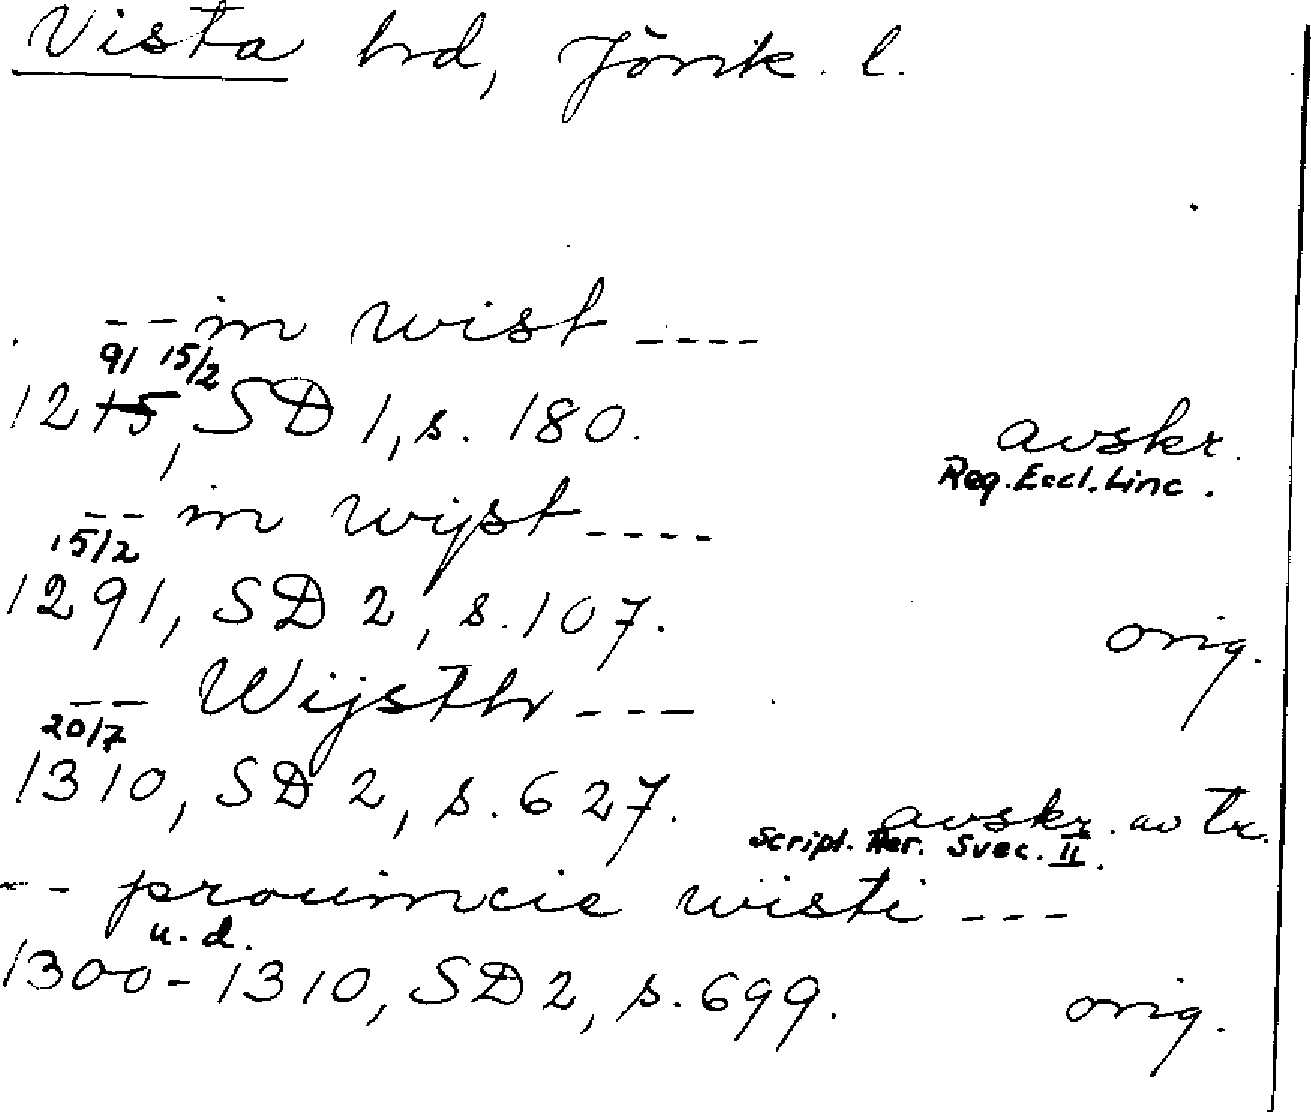 Vista hrd, Jönk. l.
-- in wist ----
91 15/2
1215, SD 1, s. 180. avskr.
Reg. Eccl. Linc.
-- in wijst ----
15/2
1291, SD 2, s. 107. orig.
-- Wijsthr ---
20/7
1310, SD 2, s. 627. avskr. av Tr.
Script. Rer. Svec. II.
-- prouincie wisti ---
u. d.
1300-1310, SD 2, s. 699. orig.